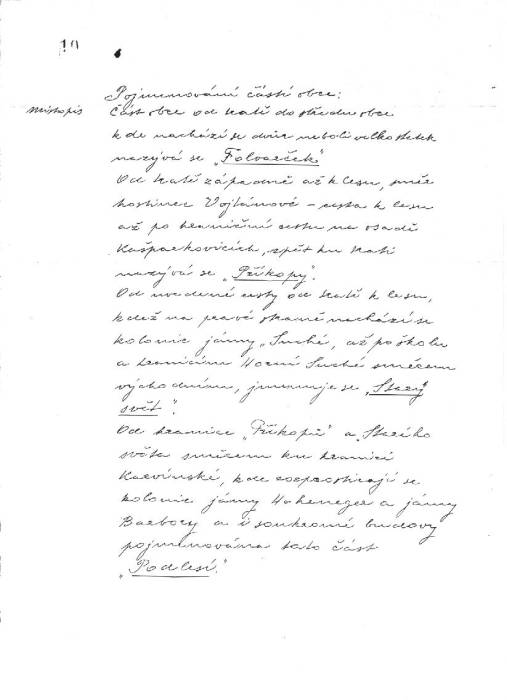 10
Pojmenování části obce:
Místopis
Část obce od tratě do středu obce
kde nachází se dvůr neboli velkostatek
nazývá se „Folvarček“
Od tratě západně až k lesu, směr
hostinec Vojtánové – cesta k lesu
až po hraniční cestu na osadě
Kašparkovicích, zpět ku trati
nazývá se „Příkopy“.
Od uvedené cesty od tratě k lesu,
kdež na pravé straně nachází se
kolonie jámy „Suché, až po školu
a hranicím Horní Suché směrem
východním, jmenuje se „Starý
svět“.
Od hranice „Příkopů“ a „Starého
světa směrem ku hranici
Karvinské, kde rozprostírají se
kolonie jámy Hoheneger a jámy
Barbory a i soukromé budovy
pojmenována tato část
„Podlesí.“